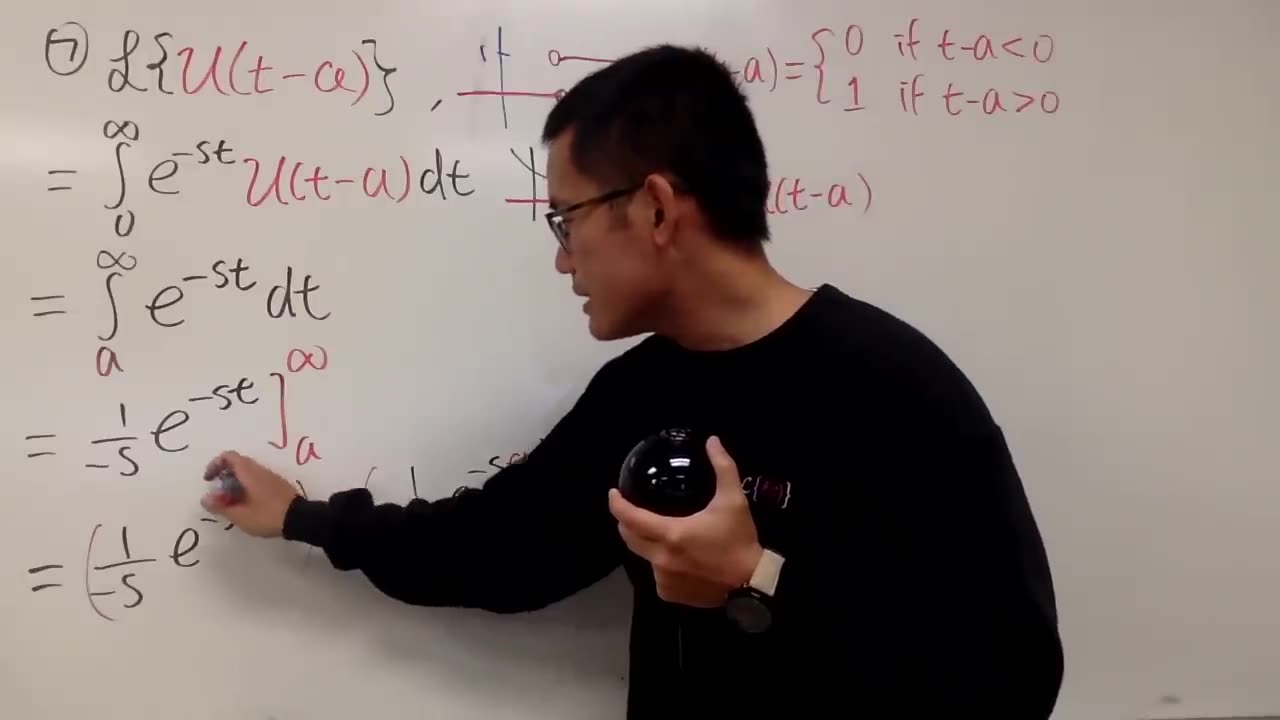 ⑦ ℒ{U(t-a)} , a)= { 0 if t-a<0
1 if t-a>0
= ∫₀^∞ e^{-st} U(t-a) dt
(t-a)
= ∫ₐ^∞ e^{-st} dt
= 1/-s e^{-st} ]ₐ^∞
= ( 1/-s e
( 1 -s